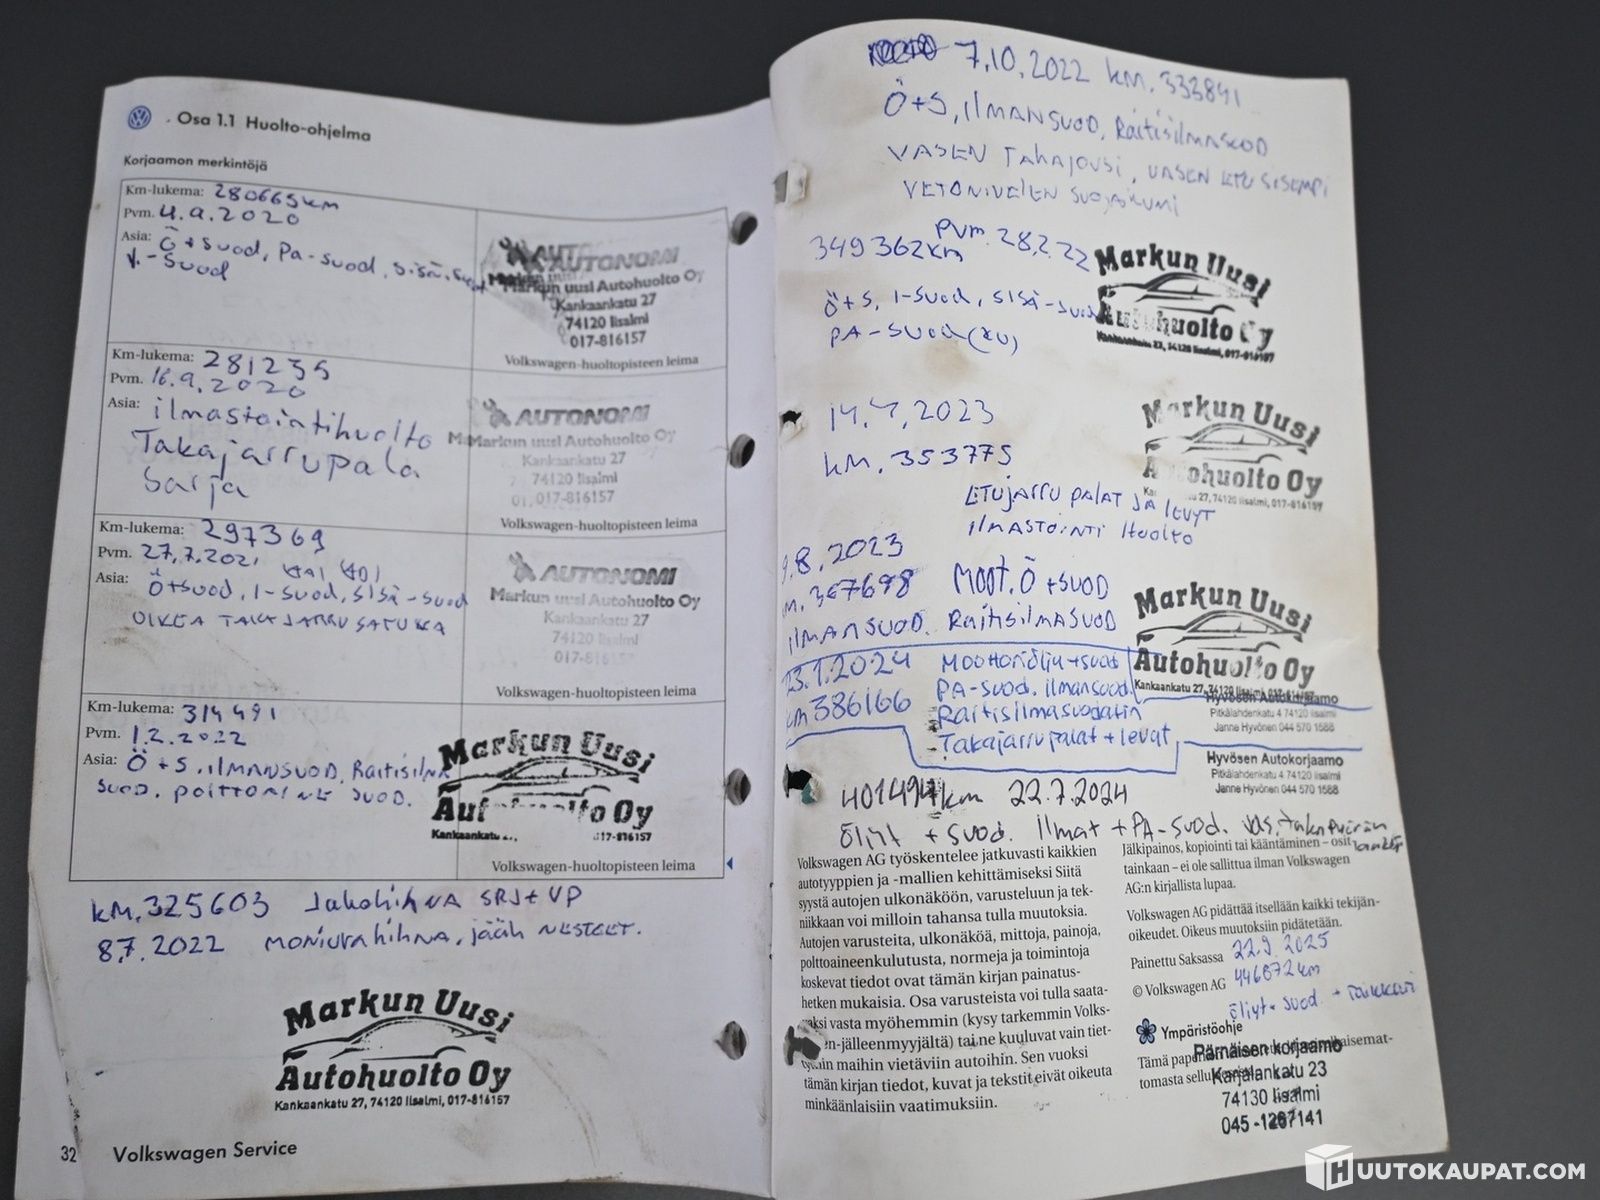 Osa 1.1 Huolto-ohjelma
Korjaamon merkintöjä
Km-lukema: 280665km
Pvm. 4.9.2020
Asia: Ö+suod, PA-suod, sisä-suod
I.-suod
AUTONOMI
Markun uusi Autohuolto Oy
Kankaankatu 27
74120 Iisalmi
017-816157
Volkswagen-huoltopisteen leima
Km-lukema: 281235
Pvm. 16.9.2020
Asia: ilmastointihuolto
Takajarrupala
sarja
AUTONOMI
Markun uusi Autohuolto Oy
Kankaankatu 27
74120 Iisalmi
017-816157
Volkswagen-huoltopisteen leima
Km-lukema: 297369
Pvm. 27.7.2021
Asia: Ö+suod, I-suod, sisä-suod
OIKEA TAKAJARRUSATULA
AUTONOMI
Markun uusi Autohuolto Oy
Kankaankatu 27
74120 Iisalmi
017-816157
Volkswagen-huoltopisteen leima
Km-lukema: 314491
Pvm. 1.2.2022
Asia: Ö+S, ILMANSUOD, RAITISILMA
SUOD. POLTTOAINE SUOD.
Markun Uusi
Autohuolto Oy
Kankaankatu 017-816157
Volkswagen-huoltopisteen leima
KM.325603 Jakohihna SRJ+VP
8.7.2022 MONIURAHIHNA, jääh NESTEET.
Markun Uusi
Autohuolto Oy
Kankaankatu 27, 74120 Iisalmi, 017-816157
32 Volkswagen Service
7.10.2022 KM.333841
Ö+S, ILMANSUOD, RAITISILMASUOD
VASEN TAKAJOUSI, VASEN ETU SISEMPI
VETONIVELEN SUOJAKUMI
349362km PVM. 28.2.22
Ö+S, I-suod, SISÄ-suod
PA-suod
Markun Uusi
Autohuolto Oy
Kankaankatu 27, 74120 Iisalmi, 017-816157
14.4.2023
KM. 353775
ETUJARRU PALAT JA LEVYT
ILMASTOINTI HUOLTO
Markun Uusi
Autohuolto Oy
27, 74120 Iisalmi, 017-816157
9.8.2023
KM. 367698 MOOT. Ö+SUOD
ILMANSUOD. RAITISILMASUOD
Markun Uusi
Autohuolto Oy
Kankaankatu 27, 74120 Iisalmi, 017-816157
23.1.2024 Moottoriöljy+suod
km 386166 PA-suod. ilmansuod.
Raitisilmasuodatin
Takajarrupalat + levat
Hyvösen Autokorjaamo
Pitkälahdenkatu 4 74120 Iisalmi
Janne Hyvönen 044 570 1588
Hyvösen Autokorjaamo
Pitkälahdenkatu 4 74120 Iisalmi
Janne Hyvönen 044 570 1588
401494km 22.7.2024
Öljyt + suod. Ilmat + PA-suod. Vas. takapyörän
Volkswagen AG työskentelee jatkuvasti kaikkien
autotyyppien ja -mallien kehittämiseksi Siitä
syystä autojen ulkonäköön, varusteluun ja tek-
niikkaan voi milloin tahansa tulla muutoksia.
Autojen varusteita, ulkonäköä, mittoja, painoja,
polttoaineenkulutusta, normeja ja toimintoja
koskevat tiedot ovat tämän kirjan painatus-
hetken mukaisia. Osa varusteista voi tulla saata-
vaksi vasta myöhemmin (kysy tarkemmin Volks-
wagen-jälleenmyyjältä) tai ne kuuluvat vain tiet-
tyihin maihin vietäviin autoihin. Sen vuoksi
tämän kirjan tiedot, kuvat ja tekstit eivät oikeuta
minkäänlaisiin vaatimuksiin.
Jälkipainos, kopiointi tai kääntäminen – osit-
tainkaan – ei ole sallittua ilman Volkswagen
AG:n kirjallista lupaa.
Volkswagen AG pidättää itsellään kaikki tekijän-
oikeudet. Oikeus muutoksiin pidätetään.
Painettu Saksassa 22.9.2025
© Volkswagen AG 446872km
öljyt+ suod.
Ympäristöohje
Tämä
tomasta
Pärnäisen korjaamo
Karjalankatu 23
74130 Iisalmi
045-1267141
HUUTOKAUPAT.COM